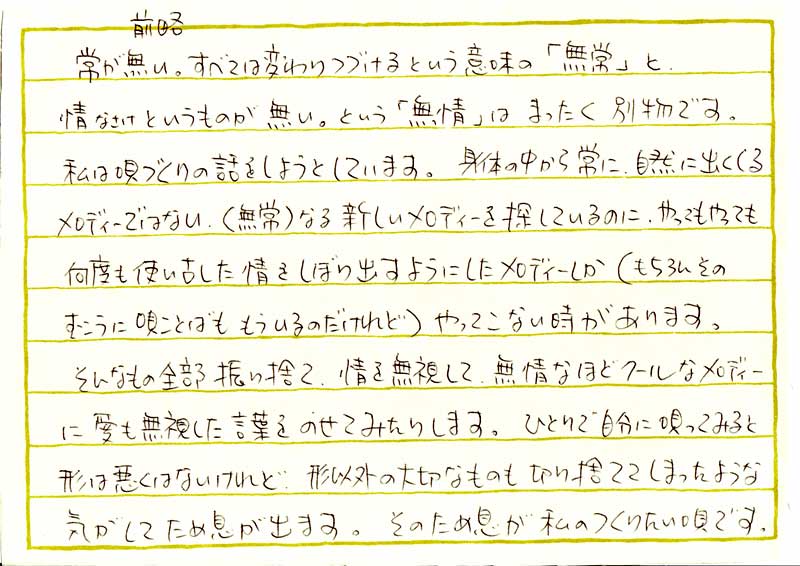 前略
常が無い。すべては変わりつづけるという意味の「無常」と、
情なさけというものが無い。という「無情」は まったく 別物です。
私は唄づくりの話をしようとしています。 身体の中から常に、自然に出てくる
メロディーではない、(無常)なる新しいメロディーを探しているのに、やってもやっても
何度も使い古した情をしぼり出すようにしたメロディーしか(もちろんその
むこうに唄ことばも もういるのだけれど)やってこない時があります。
そんなもの全部振り捨て、情を無視して、無情なほどクールなメロディー
に愛も無視した言葉をのせてみたりします。 ひとりで自分に唄ってみると
形は悪くはないけれど、形以外の大切なものも切り捨ててしまったような
気がしてため息が出ます。 そのため息が私のつくりたい唄です。